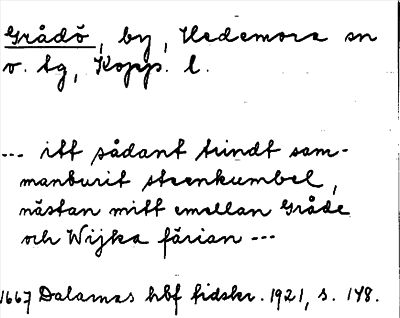 Grådö, by, Hedemora sn
v. tg, Kopp. l.
--- itt sådant trindt sam-
manburit steenkumbel,
nästan mitt emellan Gråde
och Wijka färian ---
1667 Dalarnas hbf tidskr. 1921, s. 148.